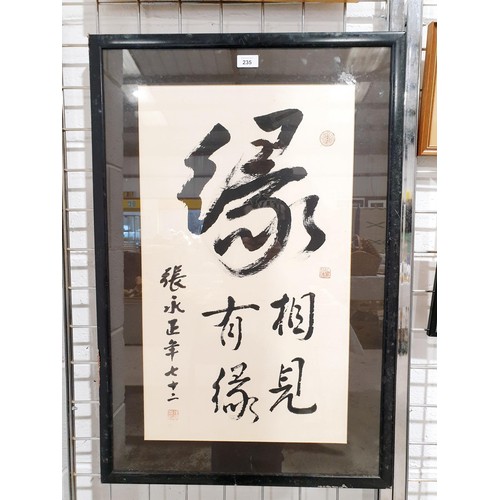 235
緣
相見
有緣
張永正年七十二